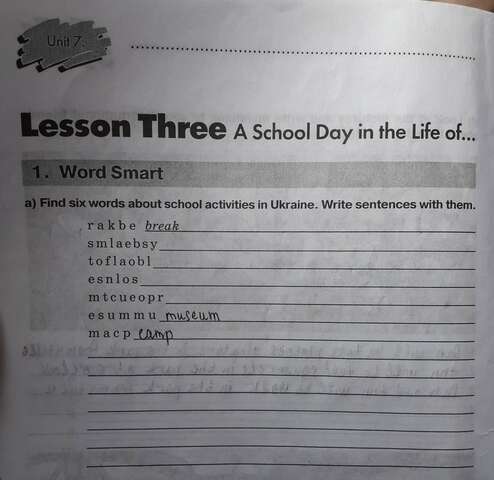 Unit 7.
Lesson Three A School Day in the Life of...
1. Word Smart
a) Find six words about school activities in Ukraine. Write sentences with them.
rakbe break
smlaebsy
toflaobl
esnlos
mtcueopr
esummu museum
macp camp